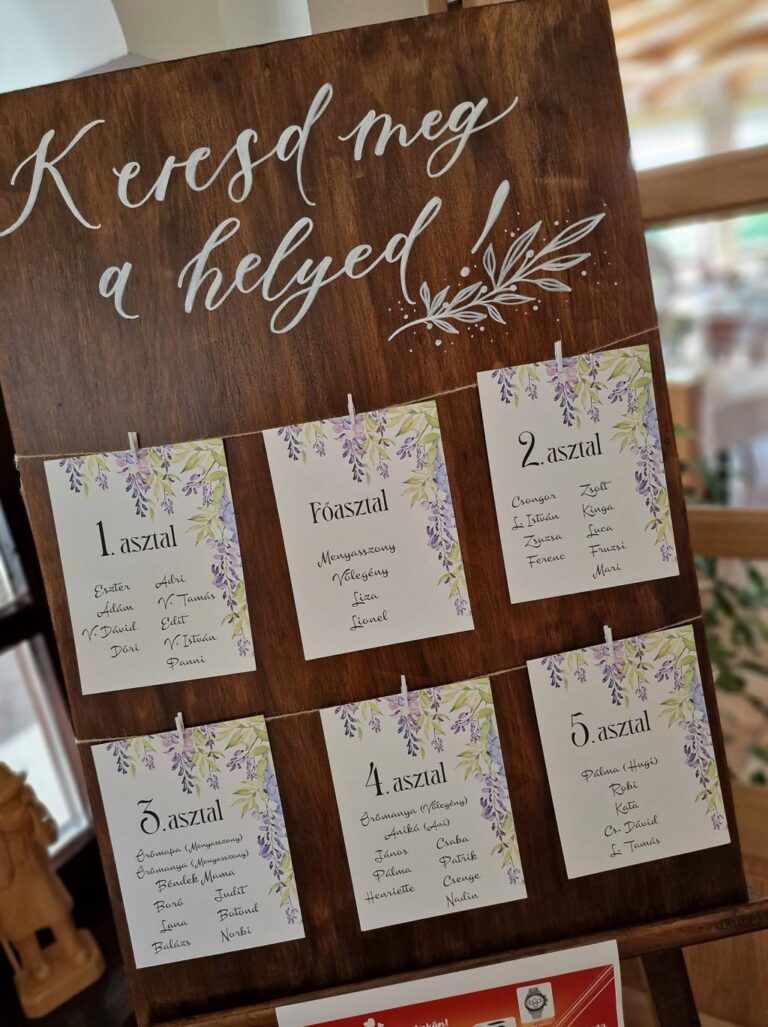 Keresd meg
a helyed!
1. asztal
Eszter Adri
Ádám V. Tamás
V. Dávid Edit
Dóri V. István
Panni
Főasztal
Menyasszony
Vőlegény
Liza
Lionel
2. asztal
Csongor Zsolt
L. István Kinga
Zsuzsa Luca
Ferenc Fruzsi
Mari
3. asztal
Örömapa (Menyasszony)
Örömanya (Menyasszony)
Béndek Mama
Boró Judit
Lana Botond
Balázs Norbi
4. asztal
Örömanya (Vőlegény)
Anikó (Ani)
János Csaba
Pálma Patrik
Henriette Csenge
Nadin
5. asztal
Pálma (Hugi)
Robi
Kata
Cs. Dávid
L. Tamás